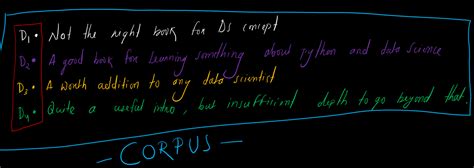 D1 • Not the right book for Ds concept
D2 • A good book for learning something about Python and data science
D3 • A worth addition to any data scientist
D4 • Quite a useful intro, but insufficient depth to go beyond that
— CORPUS —